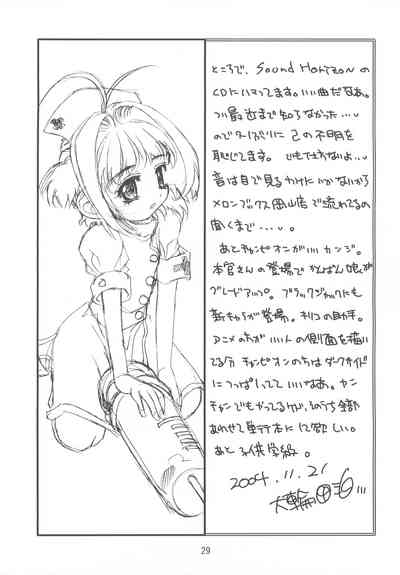 ところで、Sound Horizonの
CDにハマってます。いい曲だなあ。
つい最近まで知らなかった…
のでターボぶりに己の不明を
恥じてます。でも仕方ないよ…
音は目で見るわけにいかないから
メロンブックス岡山店で流れてるの
聞くまで…。
あとチャンピオンがいいカンジ。
本官さんの登場でがんばれ娘が
ブレードアップ。ブラックジャックにも
新キャラが登場。キリコの助手。
アニメの方がいい人の側面を描い
てる分チャンピオンの方はダークサイド
につっぱしってていいなあ。ヤン
チャンでもやってるけど、そのうち全部
あわせて単行本にして欲しい。
あと子供学級。
2004.11.21
大輪
29